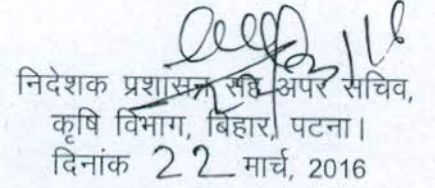 निदेशक प्रशासन सह अपर सचिव,
कृषि विभाग, बिहार, पटना।
दिनांक 22 मार्च, 2016